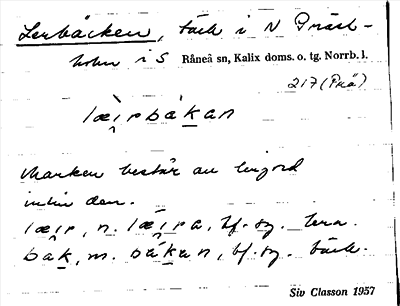 Lerbäcken, bäck i N Präst-
holm i S Råneå sn, Kalix doms. o. tg. Norrb. l.
217 (Prä)
læ̀i̯rbàkan
Marken består av lerjord
intill den.
læi̯r, n. lǽi̯ra, bf. sg. lera.
bak, m. bákan, bf. sg. bäck.
Siv Classon 1957